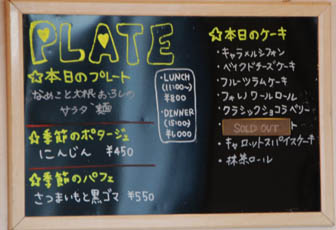 PLATE
☆本日のプレート
なめこと大根おろしの
サラダ麺
・LUNCH
(11:00~)
¥800
・DINNER
(15:00)
¥1,000
☆季節のポタージュ
にんじん ¥450
☆季節のパフェ
さつまいもと黒ゴマ ¥550
☆本日のケーキ
・キャラメルシフォン
・ベイクドチーズケーキ
・フルーツラムケーキ
・フォレノワールロール
・クラシックショコラベリー
SOLD OUT
ト
・キャロットスパイスケーキ
・抹茶ロール